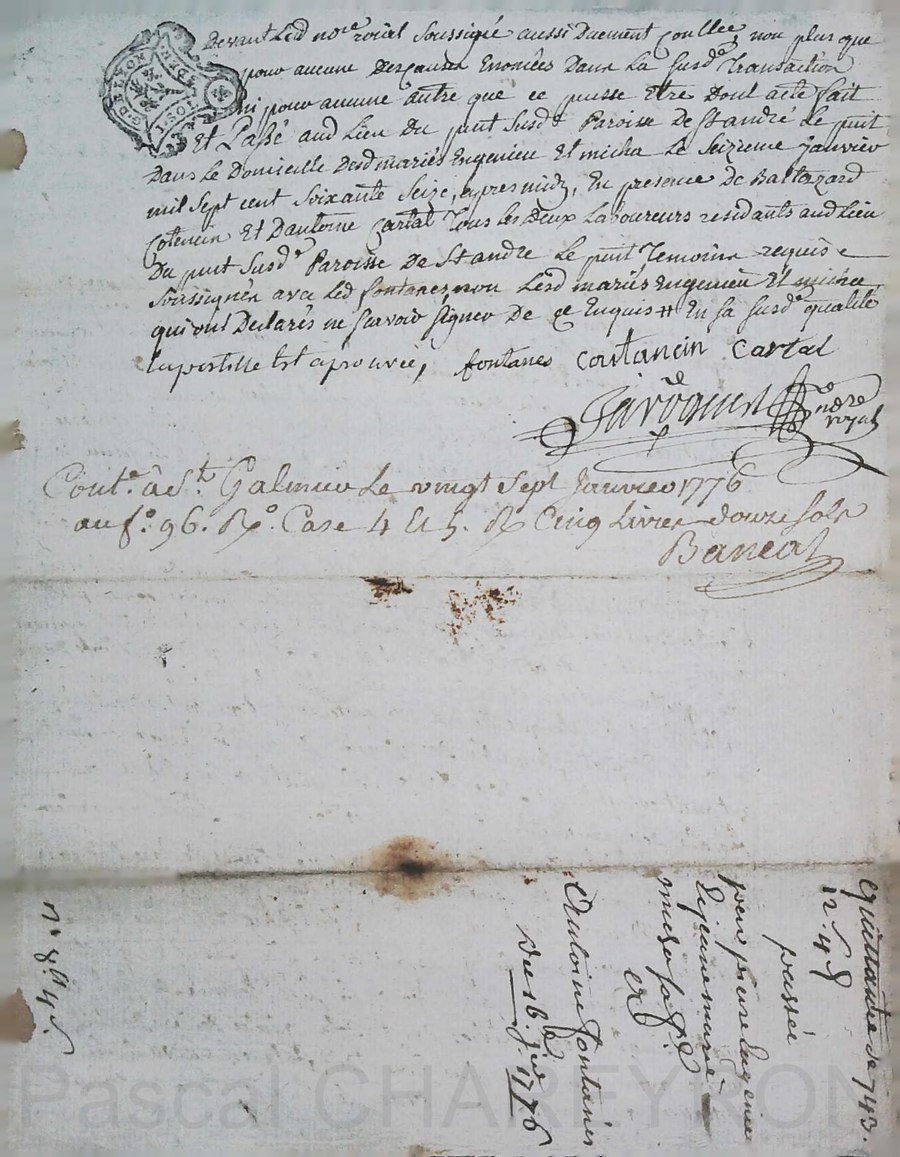 G. DE LYON
1 SOL 4 DEN
Devant Led nore roial Soussigné aussi Duement Conllée non plus que
pour aucune Des causes Enoncées Dans La susde Transaction
ni pour aucune autre que ce puisse Etre Dont acte fait
Et Passé aud Lieu Du puit susd Paroisse De St andré Le puit
Dans Le Domicille Desd mariés Engenieu Et micha Le Seizieme janvier
mil Sept cent Soixante Seize, apres midy, En presence De Baltazard
Cotencin Et Dantoine Cartal Tous Les Deux Laboureurs residants aud Lieu
Du puit susd Paroisse De St andre Le puit Temoins requis
Soussignés avec Led fontanes, non Lesd mariés Engenieu Et michea
qui ont Declarés ne scavoir signer De ce Enquis # En sa susde qualité
Lapostille Est aprouvée, fontanes coutancin cartal
nore
royal
Conte. a St. Galmier Le vingt Sept Janvier 1776
au fo. 96. Ro. Case 4 Et 5. R Cinq Livres douze sols
Bancal
quittance de 743.
12. 4 d
passée
par pierre Engenieu
Et jeanne marie
micha sa fe
a
Antoine fontanes
Du 16. Jer 1776